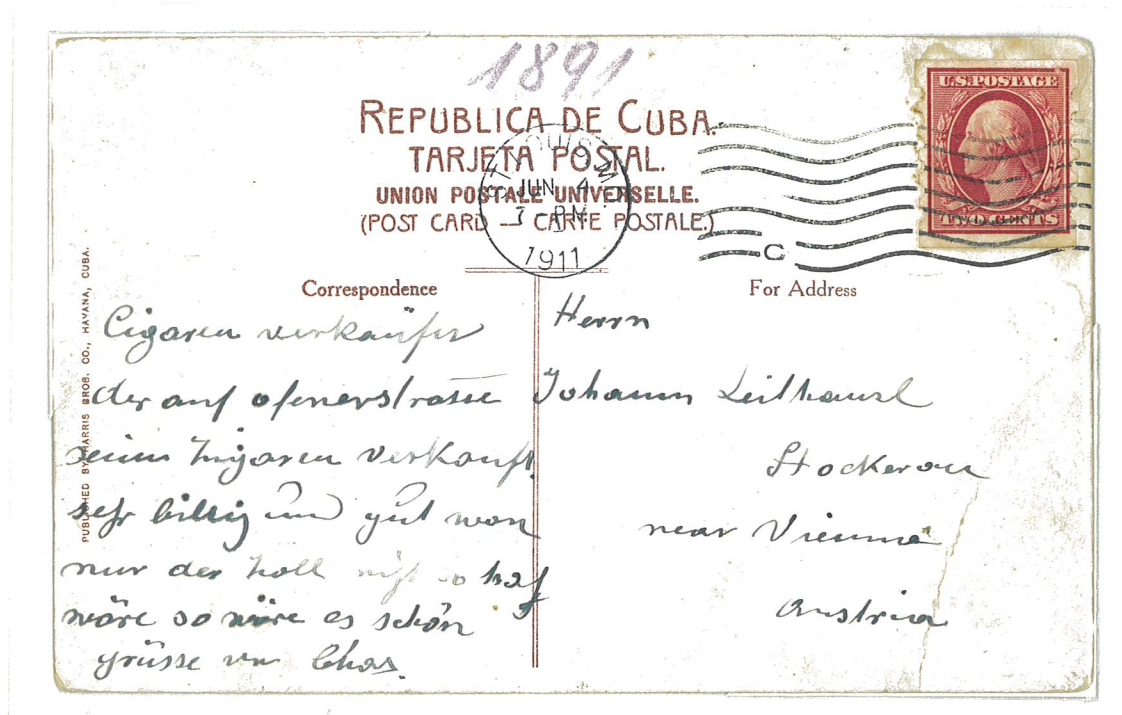 1891
REPUBLICA DE CUBA.
TARJETA POSTAL.
UNION POSTALE UNIVERSELLE.
(POST CARD — CARTE POSTALE.)
ST. LOUIS, MO.
JUN 4
7 PM
1911
C
U.S. POSTAGE
TWO CENTS
PUBLISHED BY HARRIS BROS. CO., HAVANA, CUBA.
Correspondence
Cigaren verkäufer
der auf ofenerstrasse
seine Zigaren verkauft.
sehr billig und gut wan
nur der Zoll nicht so hof
wäre so wäre es schön
grüsse von Chas.
For Address
Herrn
Johann Leithausl
Stockerau
near Vienna
Austria